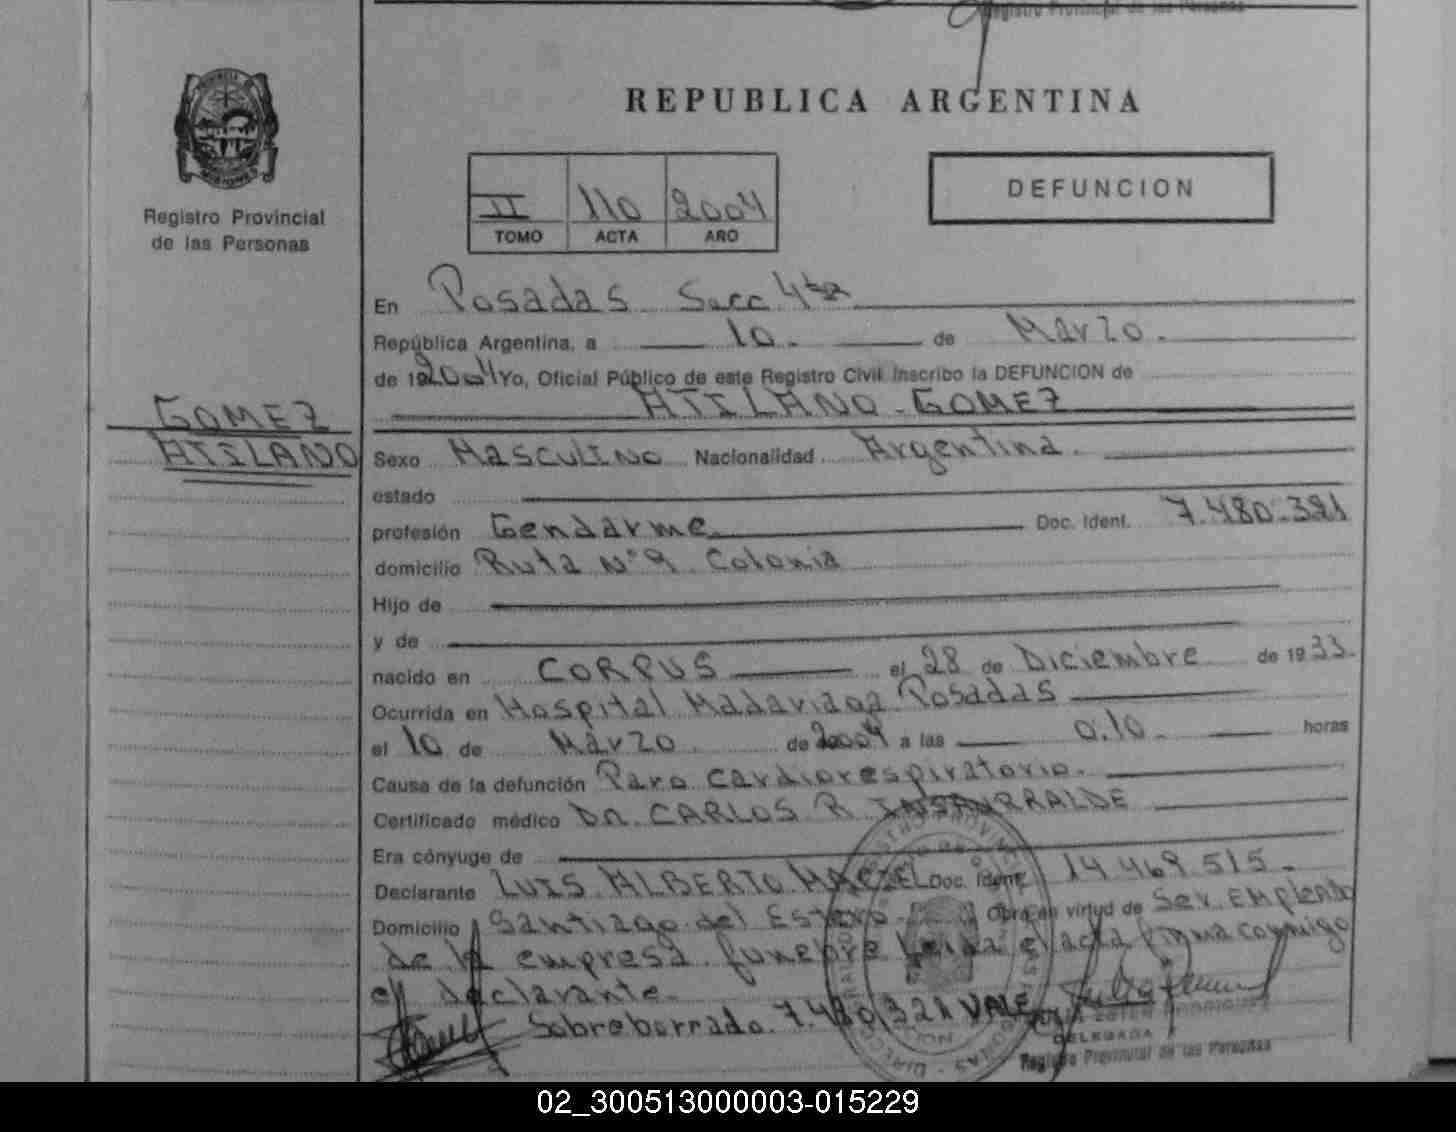 Registro Provincial de las Personas
REPUBLICA ARGENTINA
Registro Provincial
de las Personas
II 110 2004
TOMO ACTA ARO
DEFUNCION
En Posadas Secc 4ta
República Argentina, a 10. de Marzo.
de 192004 Yo, Oficial Público de este Registro Civil Inscribo la DEFUNCION de
ATILANO GOMEZ
GOMEZ
ATILANO
Sexo Masculino Nacionalidad Argentina.
estado
profesión Gendarme Doc. Ident. 7.480.321
domicilio Ruta Nº 9 Colonia
Hijo de
y de
nacido en CORPUS el 28 de Diciembre de 1933.
Ocurrida en Hospital Madariaga Posadas
el 10 de Marzo de 2004 a las 0.10. horas
Causa de la defunción Paro cardiorespiratorio.
Certificado médico Dr. CARLOS R INSAURRALDE
Era cónyuge de
Declarante LUIS ALBERTO MACIEL Doc. Ident 14.469.515.-
Domicilio Santiago del Estero Obra en virtud de Ser. Empleado
de la empresa funebre leida el acta firma conmigo
el declarante.
Sobreborrado. 7.480.321 VALE
DELEGADA
Registro Provincial de las Personas
02_300513000003-015229